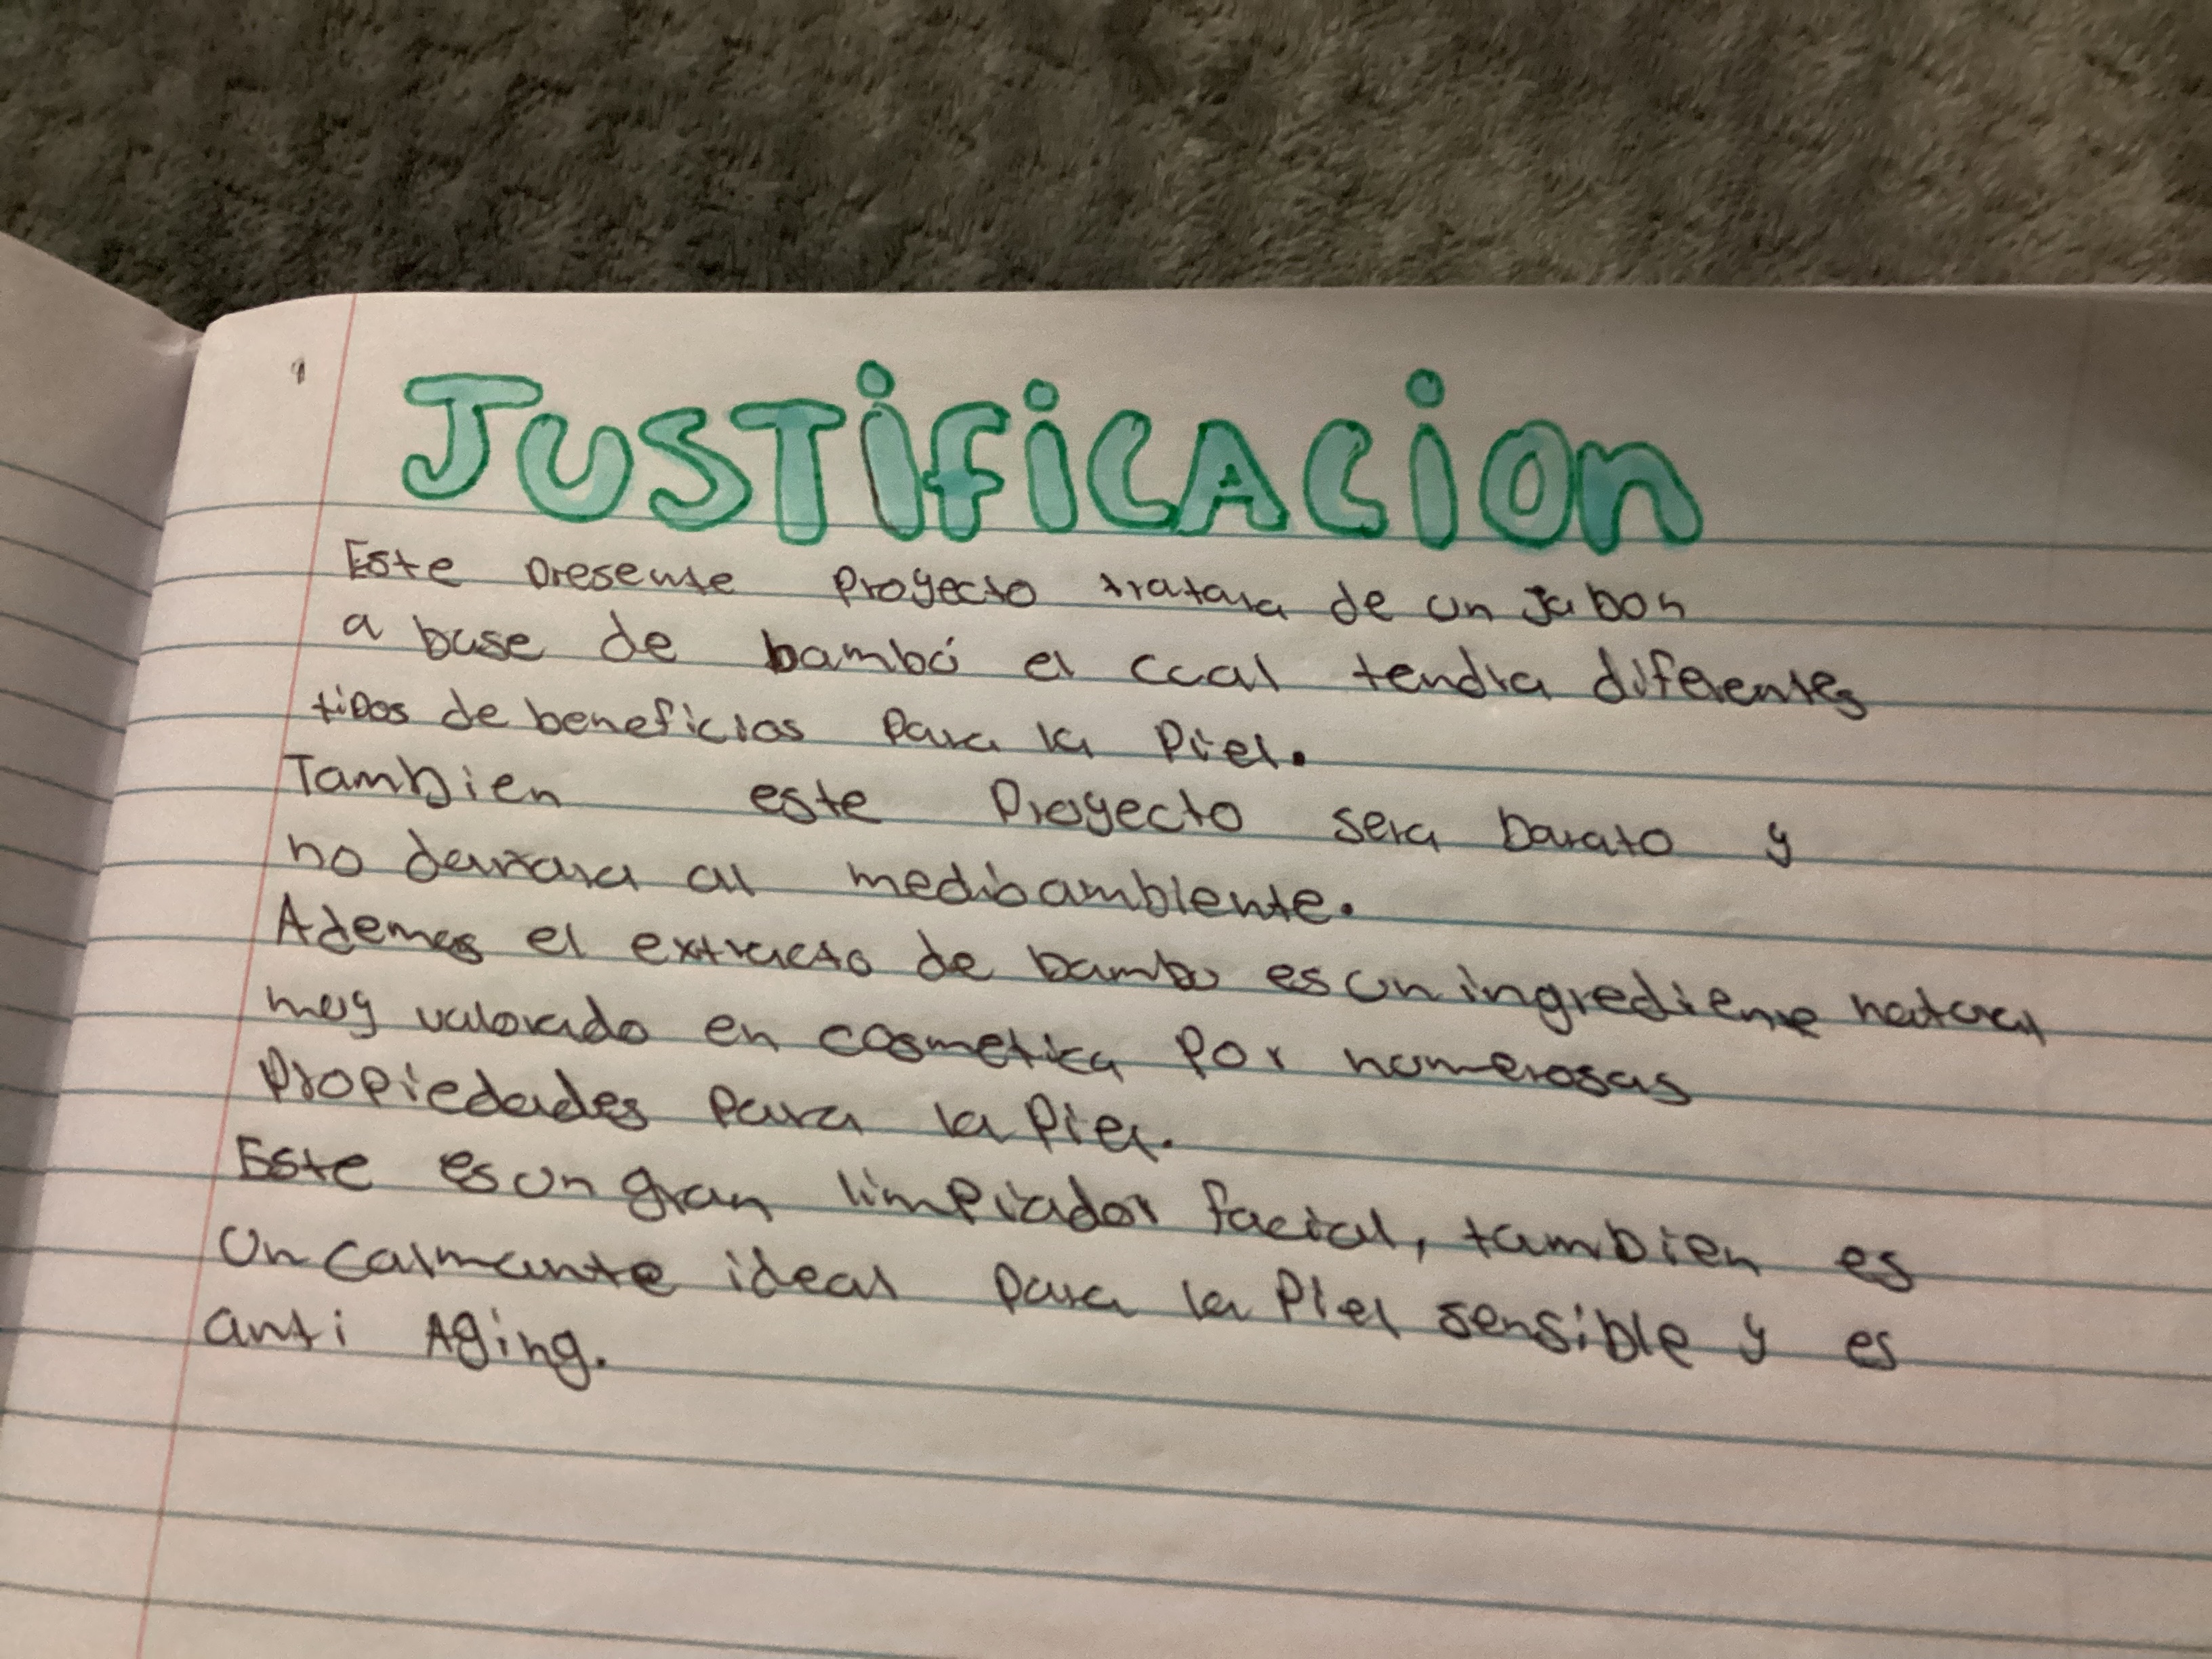 JUSTIFICACION
Este presente proyecto tratara de un jabon
a base de bambú el cual tendra diferentes
tipos de beneficios para la piel.
Tambien este proyecto sera barato y
no dañara al medioambiente.
Ademas el extracto de bambu es un ingrediente natural
muy valorado en cosmetica por numerosas
propiedades para la piel.
Este es un gran limpiador facial, tambien es
un calmante ideal para la piel sensible y es
anti Aging.